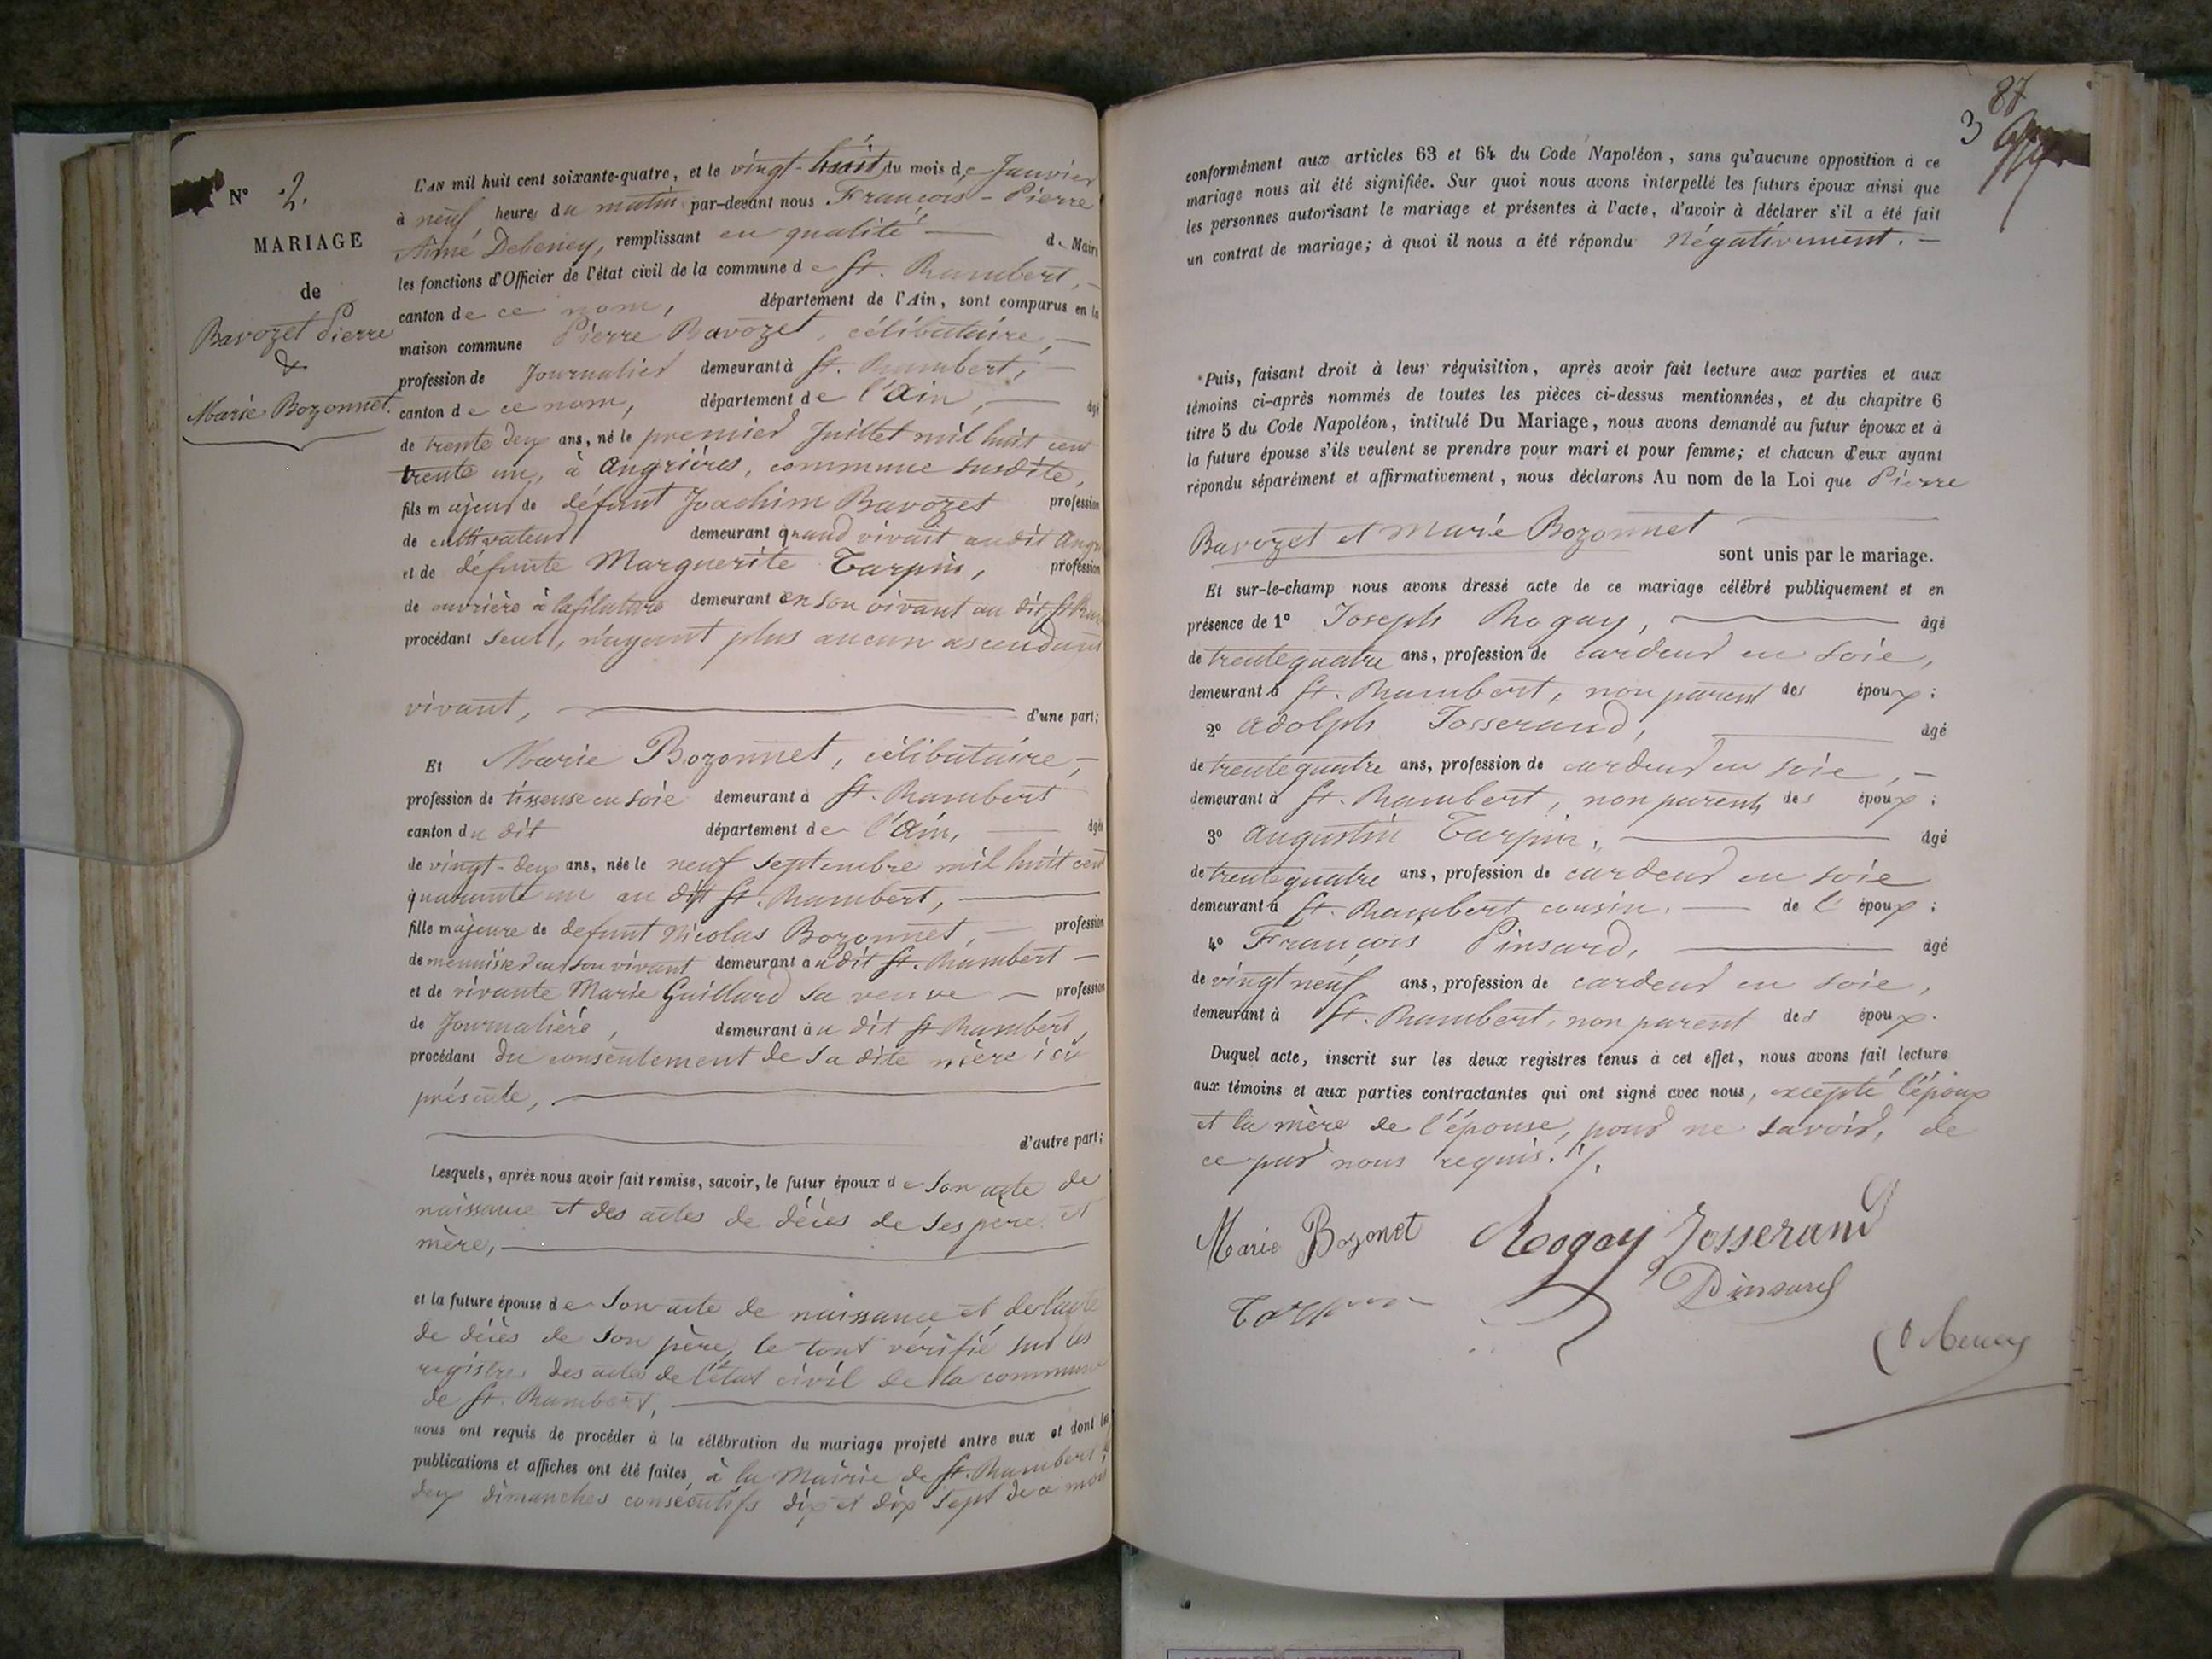 N° 2.
MARIAGE
de
Bavozet Pierre
&
Marie Bozonnet.
L'AN mil huit cent soixante-quatre, et le vingt-huit du mois de Janvier
à neuf heures du matin par-devant nous François-Pierre
Aimé Debeney, remplissant en qualité de Maire
les fonctions d'Officier de l'état civil de la commune de St. Rambert,
canton de ce nom, département de l'Ain, sont comparus en la
maison commune Pierre Bavozet, célibataire,
profession de Journalier demeurant à St. Rambert,
canton de ce nom, département de l'Ain, âgé
de trente deux ans, né le premier Juillet mil huit cent
trente un, à Angrières, commune susdite,
fils majeur de défunt Joachim Bavozet profession
de cultivateur demeurant quand vivait audit Angr
et de défunte Marguerite Tarpin, profession
de ouvrière à la filature demeurant en son vivant au dit St Ram
procédant seul, n'ayant plus aucun ascendant
vivant, d'une part;
Et Marie Bozonnet, célibataire,
profession de tisseuse en soie demeurant à St. Rambert
canton du dit département de l'Ain, âgée
de vingt-deux ans, née le neuf septembre mil huit cent
quarante un au dit St. Rambert,
fille majeure de defunt Nicolas Bozonnet, profession
de menuisier en son vivant demeurant audit St. Rambert
et de vivante Marie Guillard sa veuve profession
de Journalière, demeurant au dit St Rambert,
procédant du consentement de sa dite mère ici
présente,
d'autre part;
Lesquels, après nous avoir fait remise, savoir, le futur époux de son acte de
naissance et des actes de décès de ses père et
mère,
et la future épouse de son acte de naissance et de l'acte
de décès de son père, le tout vérifié sur les
registres des actes de l'état civil de la commune
de St. Rambert,
nous ont requis de procéder à la célébration du mariage projeté entre eux et dont les
publications et affiches ont été faites à la Mairie de St. Rambert,
deux dimanches consécutifs dix et dix sept de ce mois
87
3
conformément aux articles 63 et 64 du Code Napoléon, sans qu'aucune opposition à ce
mariage nous ait été signifiée. Sur quoi nous avons interpellé les futurs époux ainsi que
les personnes autorisant le mariage et présentes à l'acte, d'avoir à déclarer s'il a été fait
un contrat de mariage; à quoi il nous a été répondu Négativement.
Puis, faisant droit à leur réquisition, après avoir fait lecture aux parties et aux
témoins ci-après nommés de toutes les pièces ci-dessus mentionnées, et du chapitre 6
titre 5 du Code Napoléon, intitulé Du Mariage, nous avons demandé au futur époux et à
la future épouse s'ils veulent se prendre pour mari et pour femme; et chacun d'eux ayant
répondu séparément et affirmativement, nous déclarons Au nom de la Loi que Pierre
Bavozet et Marie Bozonnet
sont unis par le mariage.
Et sur-le-champ nous avons dressé acte de ce mariage célébré publiquement et en
présence de 1° Joseph Rogay, âgé
de trente quatre ans, profession de cardeur en soie,
demeurant à St. Rambert, non parent des époux;
2° Adolph Josserand, âgé
de trente quatre ans, profession de cardeur en soie,
demeurant à St. Rambert, non parent des époux;
3° Augustin Tarpin, âgé
de trente quatre ans, profession de cardeur en soie
demeurant à St. Rambert cousin de l'époux;
4° François Pinsard, âgé
de vingt neuf ans, profession de cardeur en soie,
demeurant à St. Rambert, non parent des époux.
Duquel acte, inscrit sur les deux registres tenus à cet effet, nous avons fait lecture
aux témoins et aux parties contractantes qui ont signé avec nous, excepté l'époux
et la mère de l'épouse, pour ne savoir, de
ce par nous requis. /.
Marie Bozonet Rogay Josserand
Tarpin Pinsard